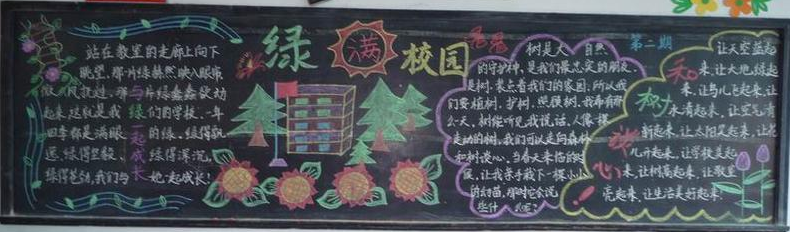 绿满校园
与绿一起成长
站在教室的走廊上向下
眺望,那片绿赫然映入眼帘
微风抚过,那片绿蠢蠢欲动
起来,这就是我们的学校,一年
四季都是满眼的绿,绿得
绿得苍劲,我们与她一起成长!
第二期
树是大自然
的守护神,是我们最忠实的朋友
是树,装点着我们的家园,所以我
们要植树、护树、照顾树,我希有那
么一天,树能听见我说话,人像棵
走动的树,我们可以走向森林
和树谈心,当春天来临的时
候,让我亲手栽下一棵小小
的幼苗,那时它会说
些什
和树谈心
让天空蓝起
来,让大地绿起
来,让鸟儿飞起来,让
水清起来,让空气清
新起来,让太阳笑起来,让花
儿开起来,让学校美起
来,让树高起来,让教室
亮起来,让生活美好起来!